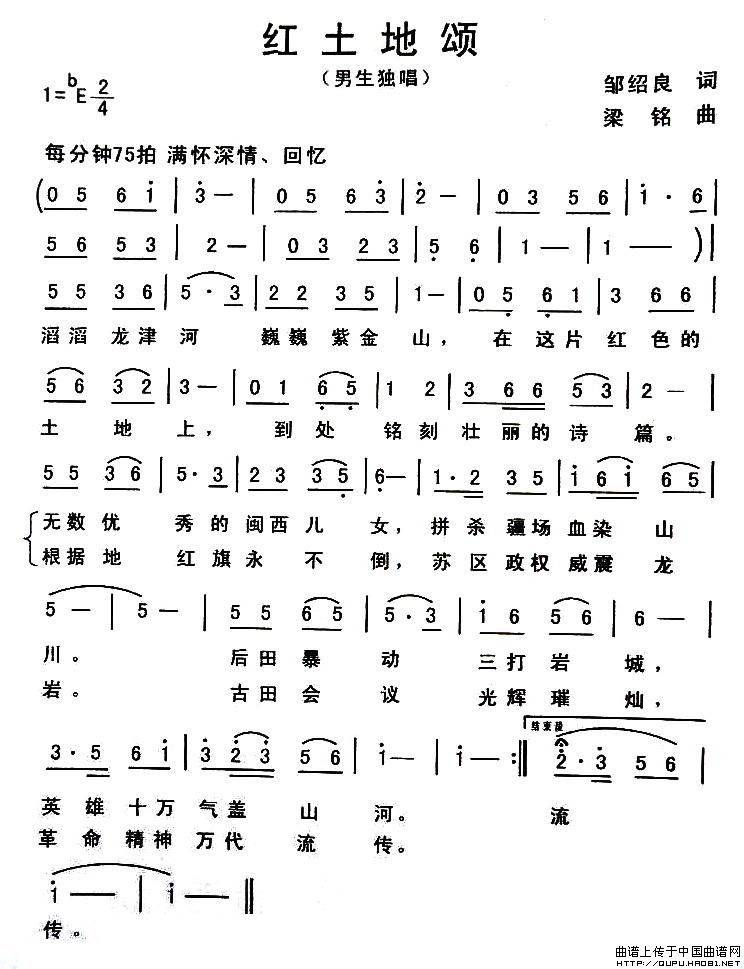 红土地颂
（男生独唱）
1=ᵇE 2/4
邹绍良 词
梁铭 曲
每分钟75拍 满怀深情、回忆
(0 5 6 i | 3 — | 0 5 6 3 | 2 — | 0 3 5 6 | i · 6 |
5 6 5 3 | 2 — | 0 3 2 3 | 5 6 | 1 — | 1 — )|
5 5 3 6 | 5 · 3 | 2 2 3 5 | 1 — | 0 5 6 1 | 3 6 6 |
滔滔龙津河 巍巍紫金山，在这片红色的
5 6 3 2 | 3 — | 0 1 6 5 | 1 2 | 3 6 6 5 3 | 2 — |
土地上，到处铭刻壮丽的诗篇。
5 5 3 6 | 5 · 3 | 2 3 3 5 | 6 — | 1 · 2 3 5 | i 6 i 6 5 |
无数优秀的闽西儿女，拼杀疆场血染山
根据地红旗永不倒，苏区政权威震龙
5 — | 5 — | 5 5 6 5 | 5 · 3 | i 6 5 6 | 6 — |
川。后田暴动三打岩城，
岩。古田会议光辉璀灿，
结束段
3 · 5 6 i | 3 2 3 5 6 | i — | i — :‖ 2 · 3 5 6 |
英雄十万气盖山河。流
革命精神万代流传。
i — | i — ‖
传。
曲谱上传于中国曲谱网
HTTP://QUPU.HAO81.NET